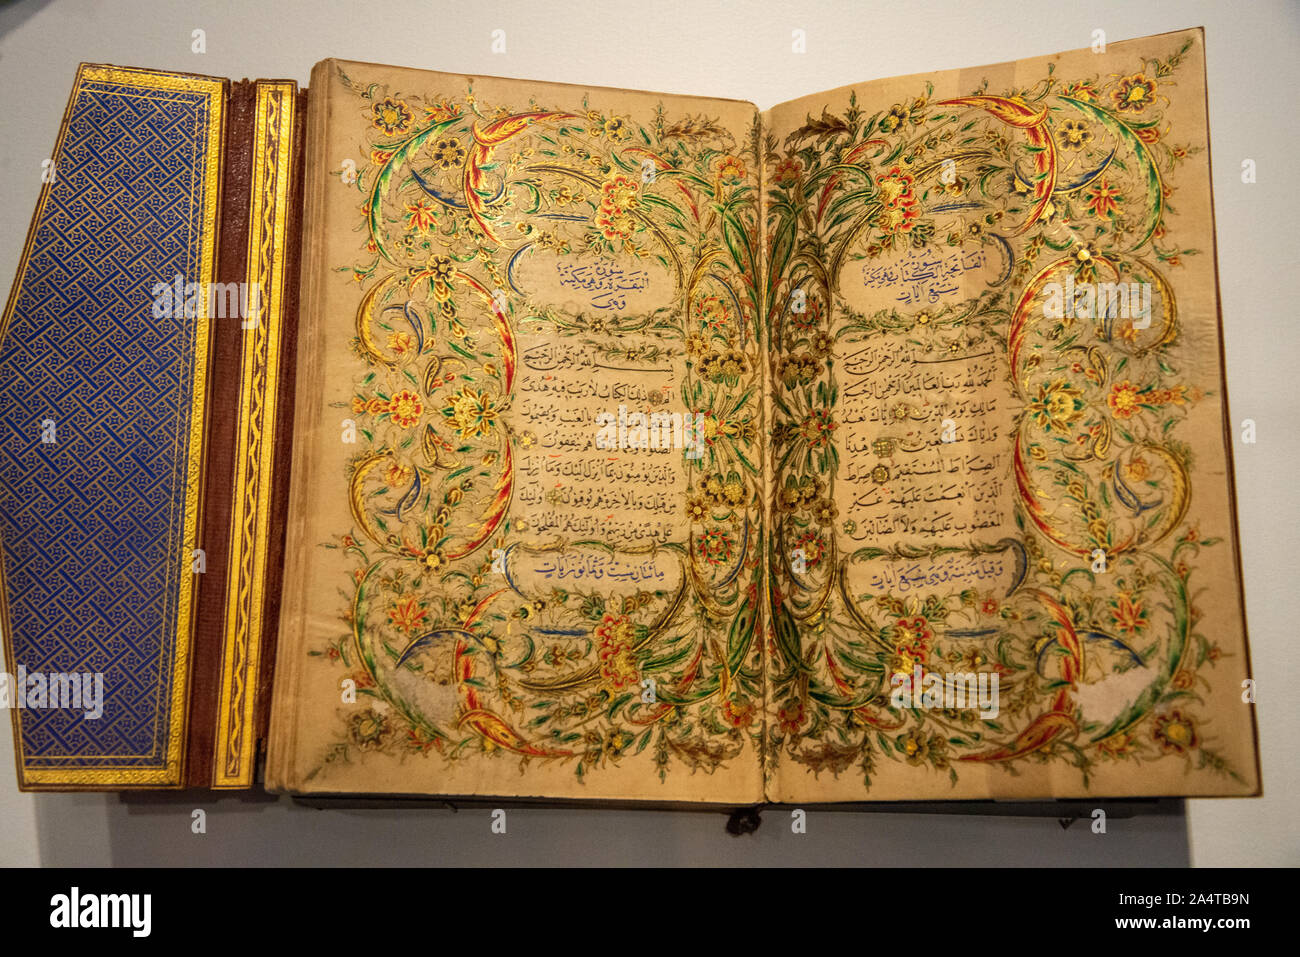 سورة الفاتحة الكتاب وهي مكية
سبع آيات
بسم الله الرحمن الرحيم
الحمد لله رب العالمين الرحمن الرحيم
مالك يوم الدين إياك نعبد
وإياك نستعين هدنا
الصراط المستقيم صراط
الذين أنعمت عليهم غير
المغضوب عليهم ولا الضالين
وقيل مدنية وهي سبع آيات
سورة
البقرة وهي مكية
وهي
بسم الله الرحمن الرحيم
الم ذلك الكتاب لا ريب فيه هدى
بالغيب ويقيمون
الصلوة ومما رزقناهم ينفقون
والذين يؤمنون بما أنزل إليك وما أنزل
من قبلك وبالآخرة هم يوقنون أولئك
على هدى من ربهم وأولئك هم المفلحون
مائتان وست وثمانون آيات
alamy
Image ID: 2A4TB9N
www.alamy.com